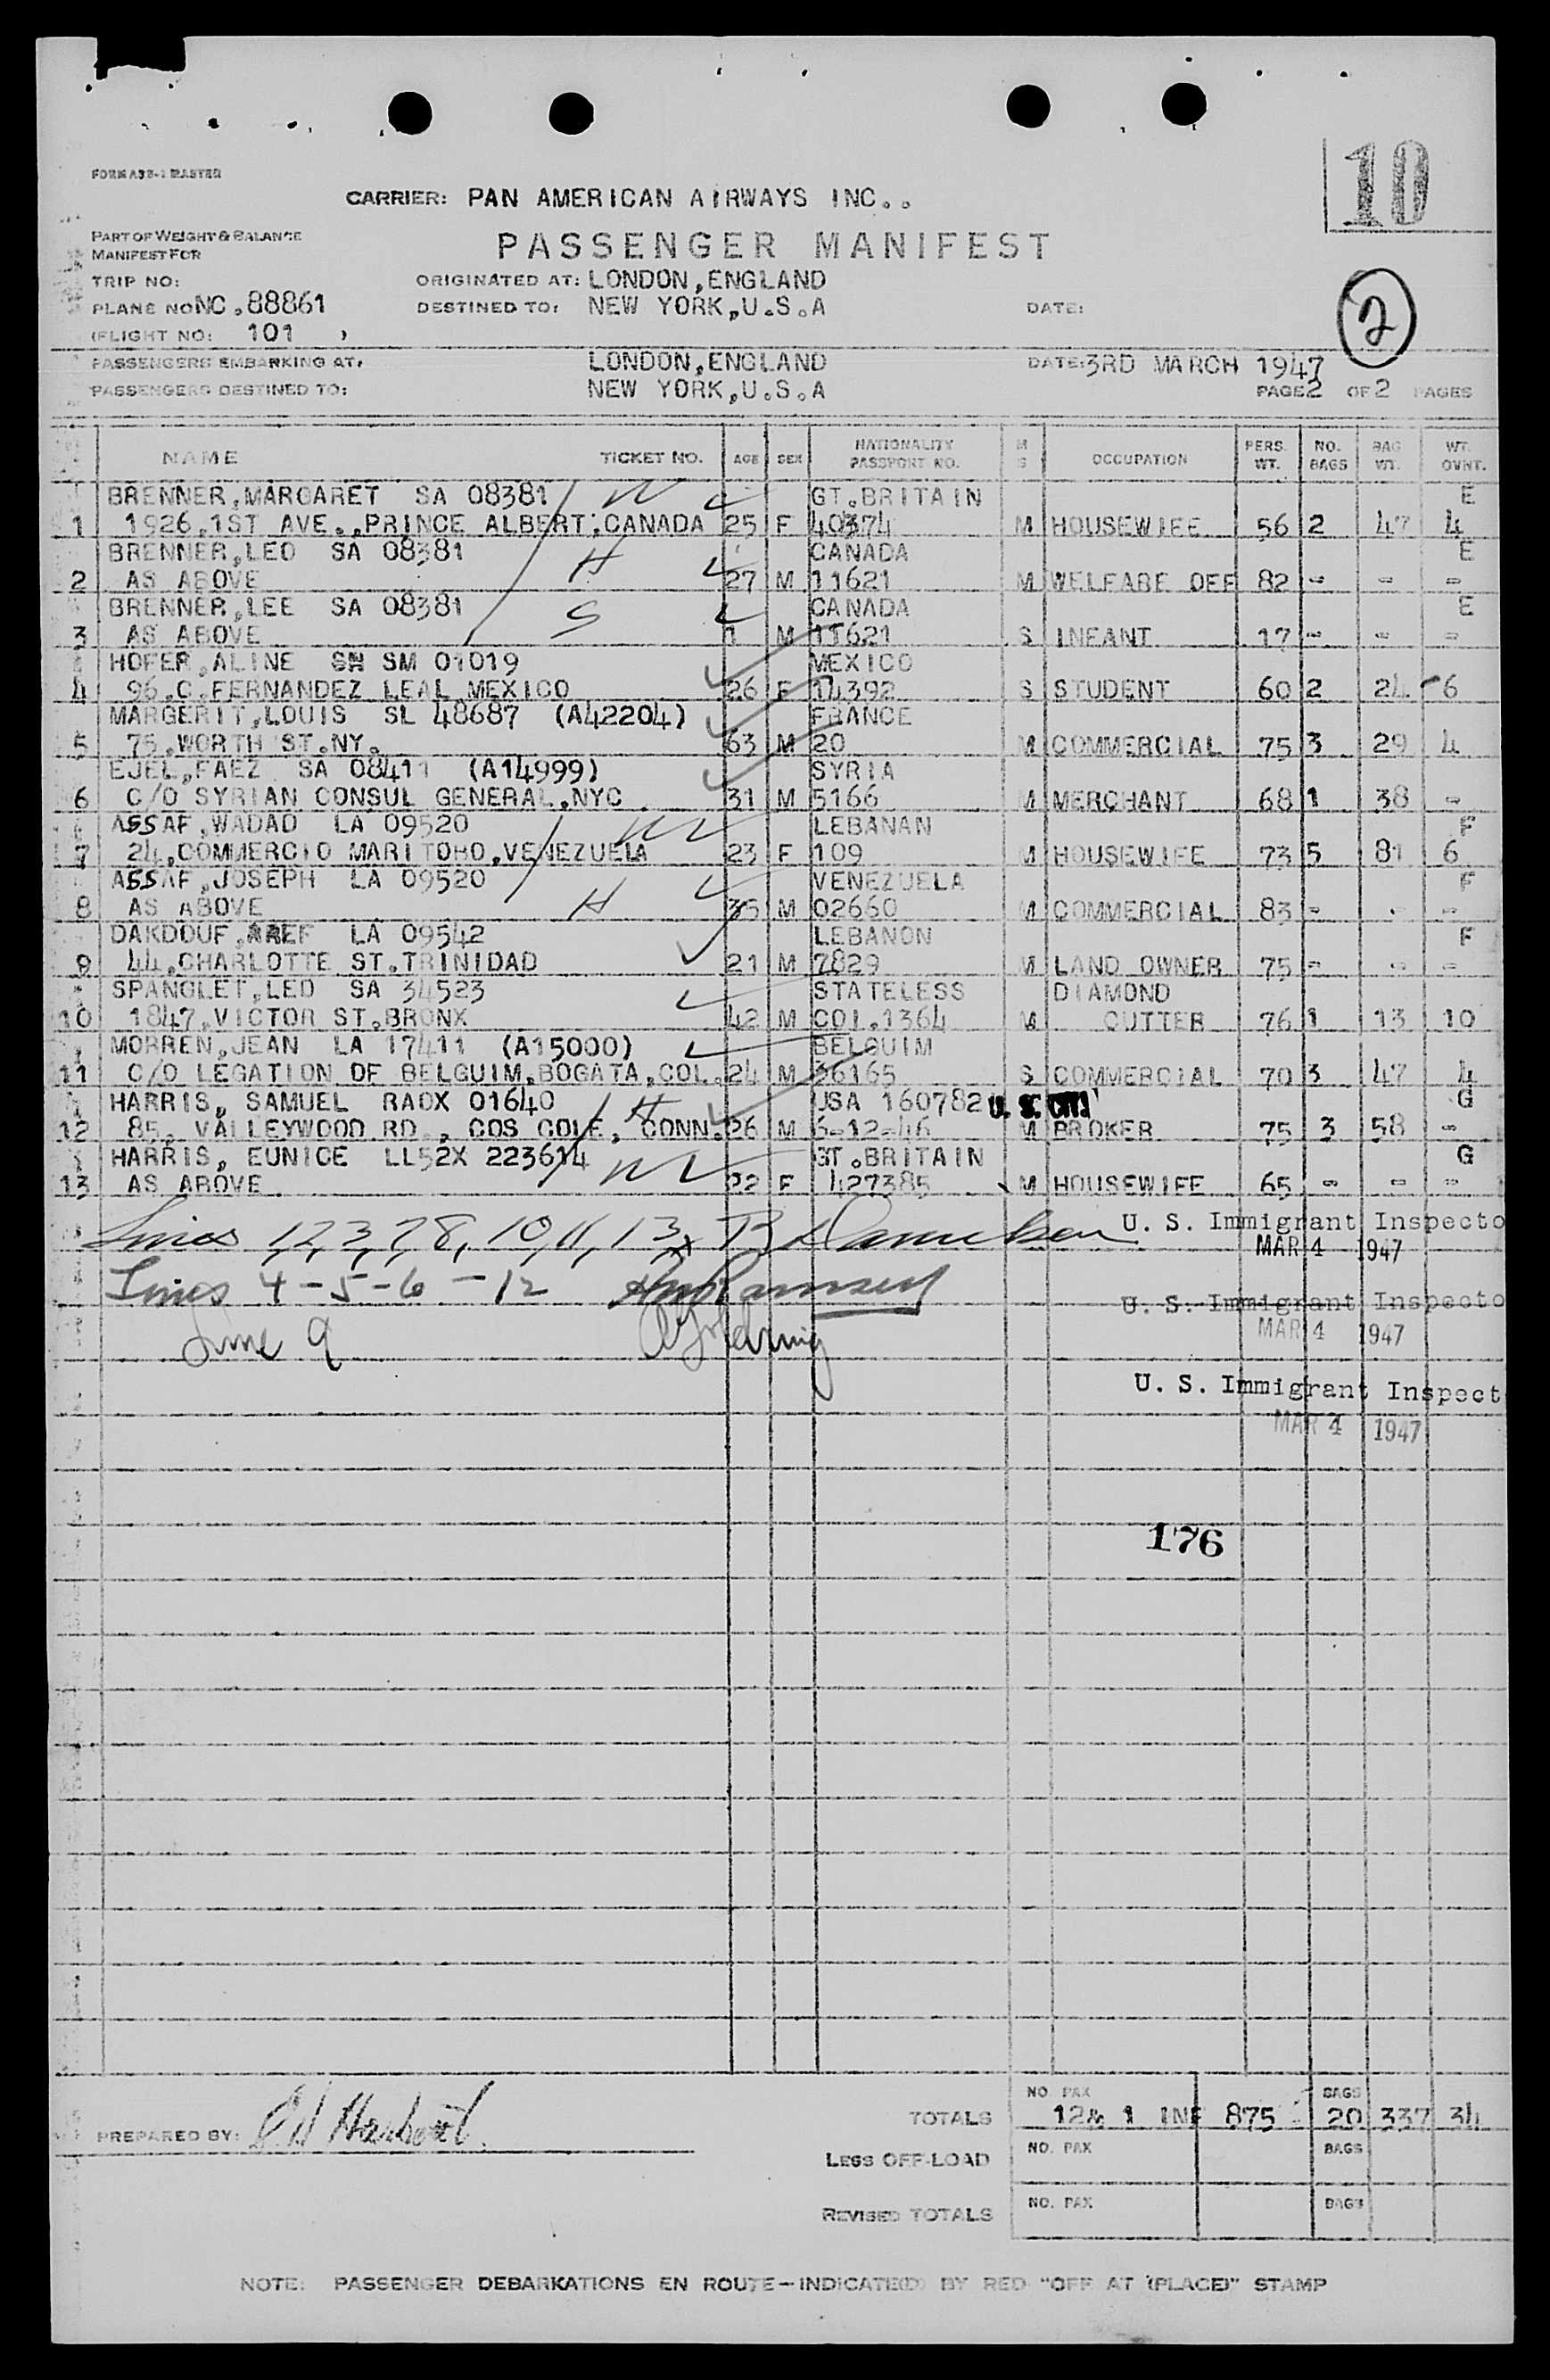 FORM A33-1 MASTER
10
CARRIER: PAN AMERICAN AIRWAYS INC..
PART OF WEIGHT & BALANCE
MANIFEST FOR
PASSENGER MANIFEST
TRIP NO: ORIGINATED AT: LONDON,ENGLAND
PLANE NO NC.88861 DESTINED TO: NEW YORK,U.S.A DATE: 2
(FLIGHT NO: 101 )
PASSENGERS EMBARKING AT: LONDON,ENGLAND DATE: 3RD MARCH 1947
PASSENGERS DESTINED TO: NEW YORK,U.S.A PAGE 2 OF 2 PAGES
NAME TICKET NO. AGE SEX NATIONALITY PASSPORT NO. M S OCCUPATION PERS. WT. NO. BAGS BAG WT. WT. OVNT.
BRENNER,MARGARET SA 08381 W GT.BRITAIN E
1 1926.1ST AVE.,PRINCE ALBERT,CANADA 25 F 40374 M HOUSEWIFE 56 2 47 4
BRENNER,LEO SA 08381 H CANADA E
2 AS ABOVE 27 M 11621 M WELFARE OFF 82 - - -
BRENNER,LEE SA 08381 S CANADA E
3 AS ABOVE 1 M 11621 S INFANT 17 - - -
HOFER,ALINE SN SM 01019 MEXICO
4 96.C.FERNANDEZ LEAL MEXICO 26 F 14392 S STUDENT 60 2 24 6
MARGERIT,LOUIS SL 48687 (A42204) FRANCE
5 75.WORTH ST.NY. 63 M 20 M COMMERCIAL 75 3 29 4
EJEL,FAEZ SA 08411 (A14999) SYRIA
6 C/O SYRIAN CONSUL GENERAL,NYC 31 M 5166 M MERCHANT 68 1 38 -
ASSAF,WADAD LA 09520 W LEBANAN F
7 24,COMMERCIO MARITOHO,VENEZUELA 23 F 109 M HOUSEWIFE 73 5 81 6
ASSAF,JOSEPH LA 09520 VENEZUELA F
8 AS ABOVE H 35 M 02660 M COMMERCIAL 83 - - -
DAKDOUF,AREF LA 09542 LEBANON F
9 44,CHARLOTTE ST.TRINIDAD 21 M 7829 M LAND OWNER 75 - - -
SPANGLET,LEO SA 34523 STATELESS DIAMOND
10 1847,VICTOR ST.BRONX 42 M COI.1364 M CUTTER 76 1 13 10
MORREN,JEAN LA 17411 (A15000) BELGUIM
11 C/O LEGATION OF BELGUIM,BOGATA,COL. 24 M 36165 S COMMERCIAL 70 3 47 4
HARRIS, SAMUEL RAOX 01640 H USA 160782 U. S. CIT. G
12 85, VALLEYWOOD RD., COS COLE, CONN. 26 M 6-12-46 M BROKER 75 3 58 -
HARRIS, EUNICE LL52X 223614 W GT.BRITAIN G
13 AS ABOVE 22 F 427385 M HOUSEWIFE 65 - - -
Lines 1,2,3,7,8,10,11,13 U. S. Immigrant Inspecto
MAR 4 1947
Lines 4-5-6-12 Ramsey U. S. Immigrant Inspecto
MAR 4 1947
Line 9 Golding
U. S. Immigrant Inspect
MAR 4 1947
176
TOTALS NO. PAX 12& 1 INF 875 BAGS 20 337 34
PREPARED BY:
LESS OFF-LOAD NO. PAX BAGS
REVISED TOTALS NO. PAX BAGS
NOTE: PASSENGER DEBARKATIONS EN ROUTE—INDICATE(D) BY RED "OFF AT (PLACE)" STAMP